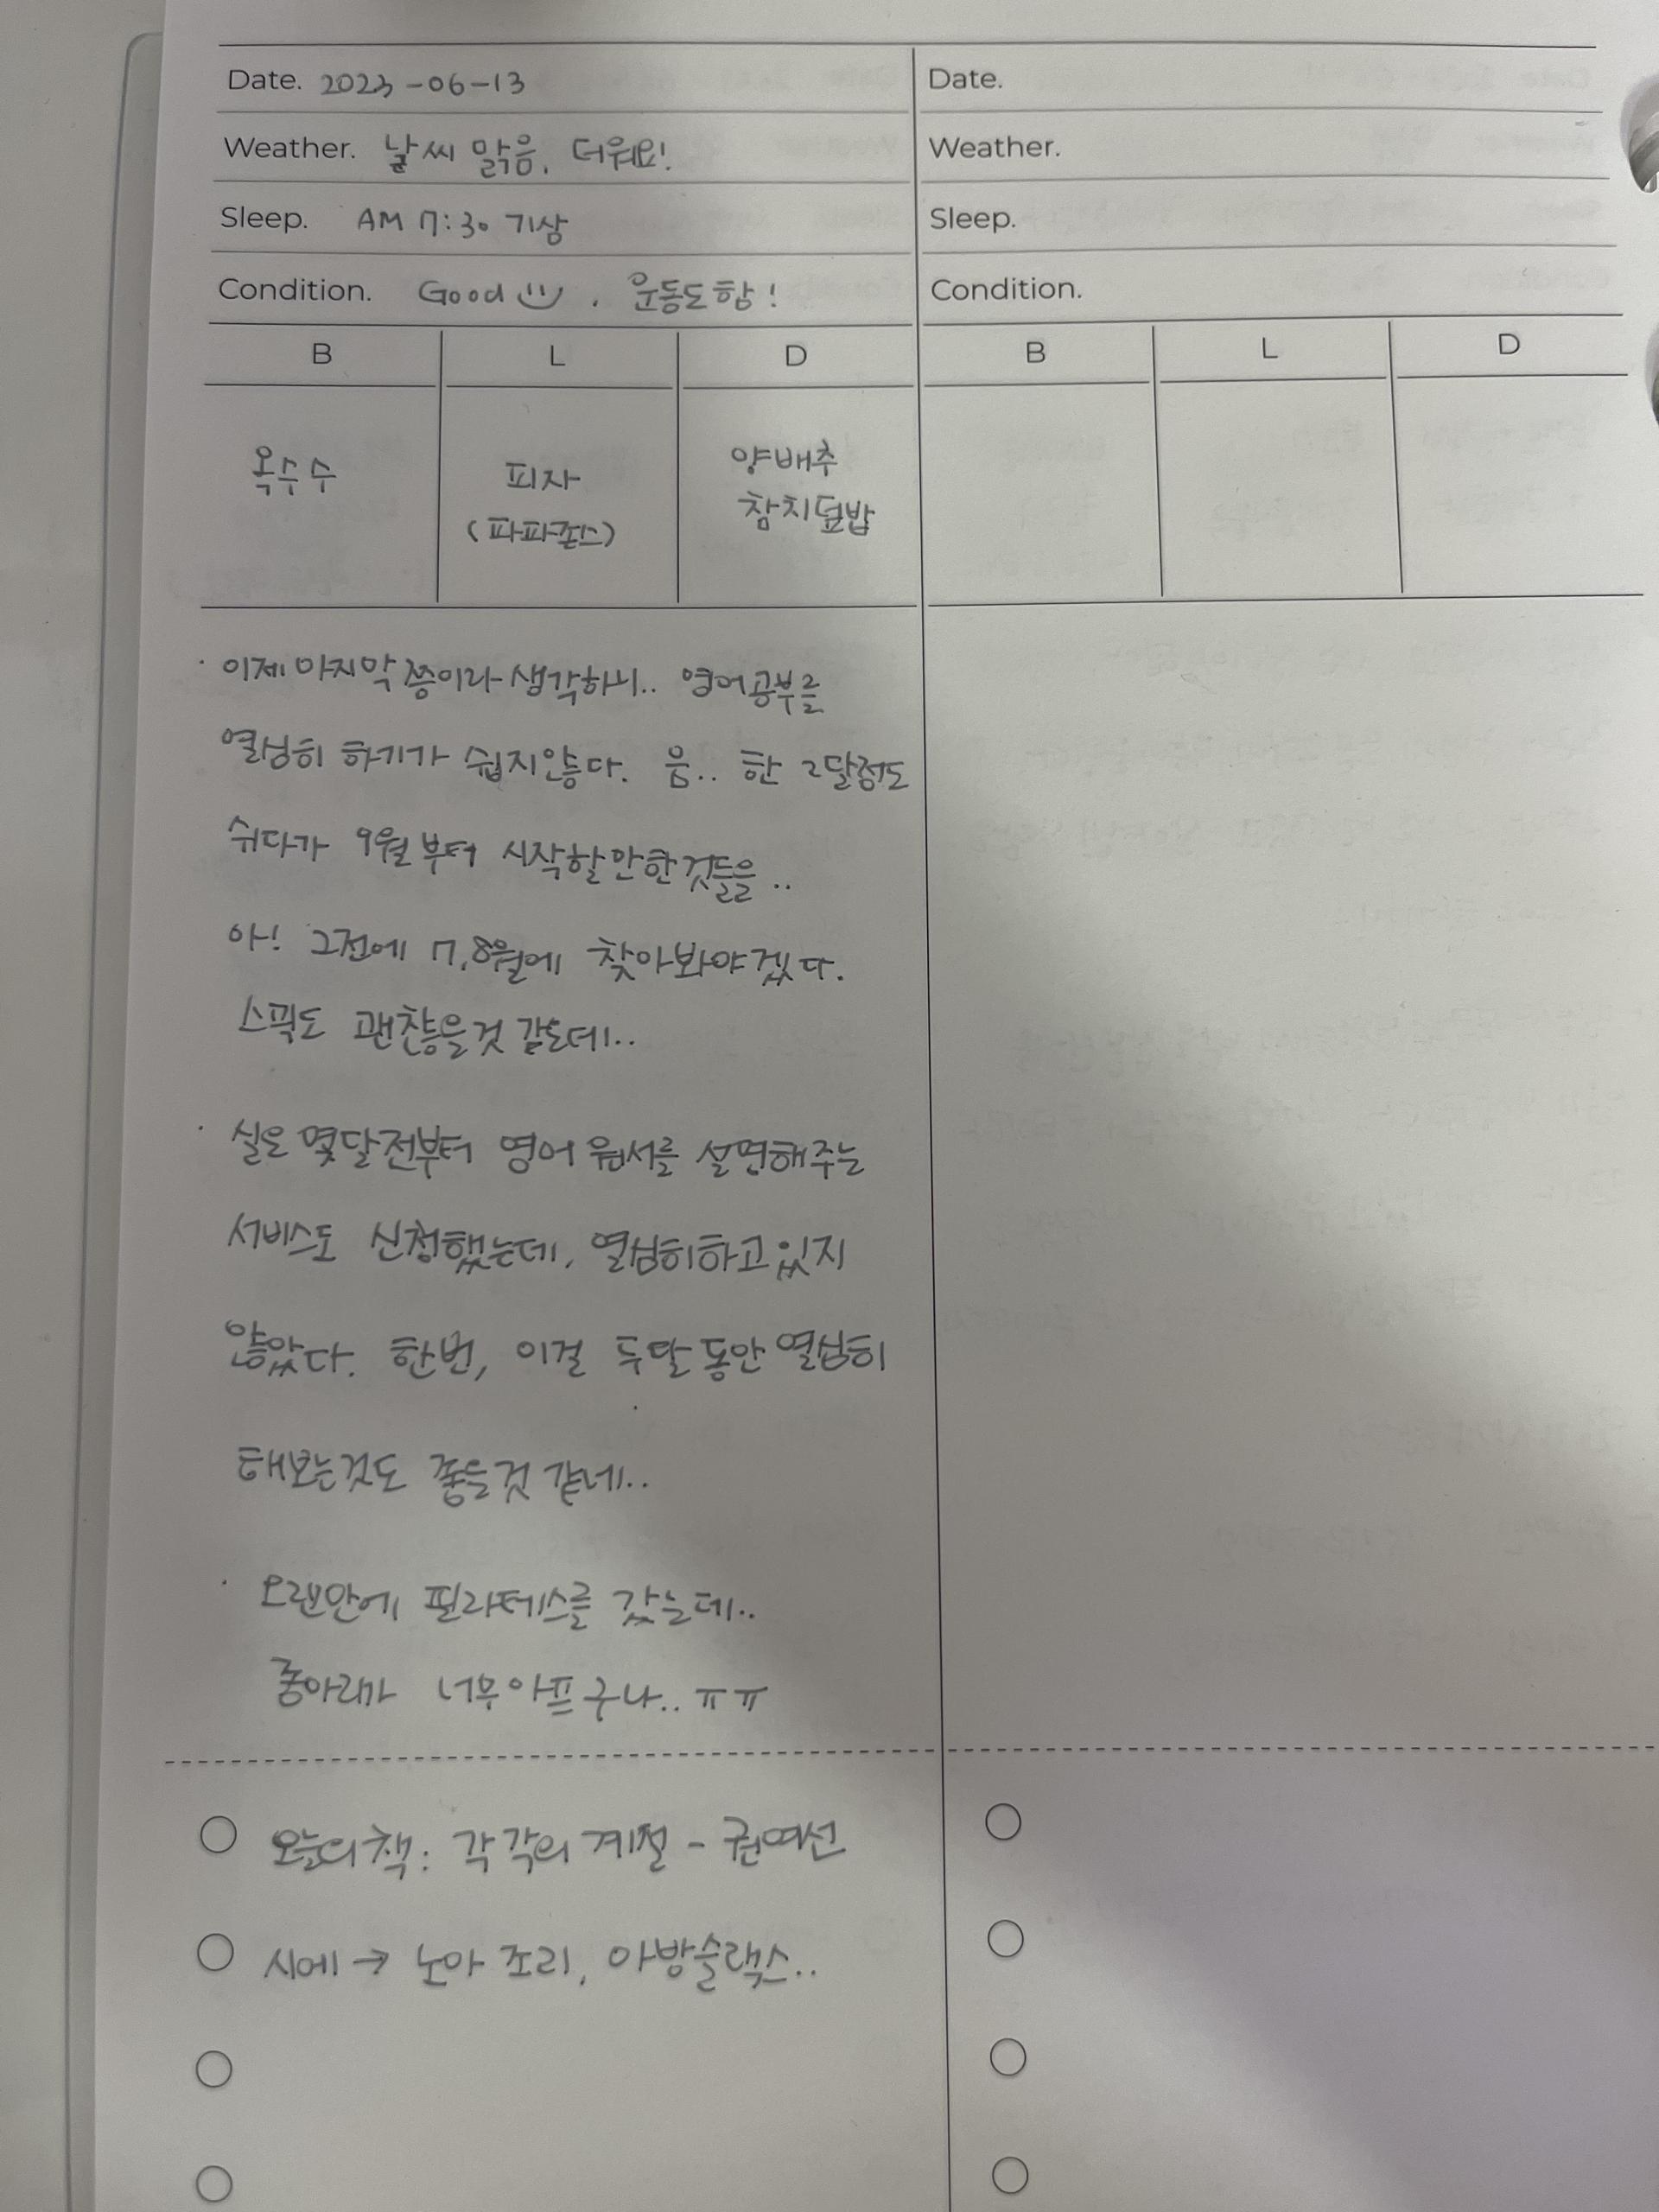 Date. 2023-06-13
Weather. 날씨 맑음. 더워요!
Sleep. AM 7:30 기상
Condition. Good . 운동도 함!
B L D
옥수수
피자
(파파존스)
양배추
참치덮밥
· 이제 마지막 쯤이라 생각하니.. 영어공부를
열심히 하기가 쉽지않다. 음.. 한 2달정도
쉬다가 9월부터 시작할 만한것들을..
아! 그전에 7,8월에 찾아봐야겠다.
스픽도 괜찮을것 같은데..
· 실은 몇달전부터 영어 원서를 설명해주는
서비스도 신청했는데, 열심히하고있지
않았다. 한번, 이걸 두달동안 열심히
해보는것도 좋을것 같네..
· 오랜만에 필라테스를 갔는데..
종아리가 너무 아프구나..ㅠㅠ
오늘의 책: 각각의 계절 - 권여선
시에 → 노아 조리, 아방슬랙스..
Date.
Weather.
Sleep.
Condition.
B L D